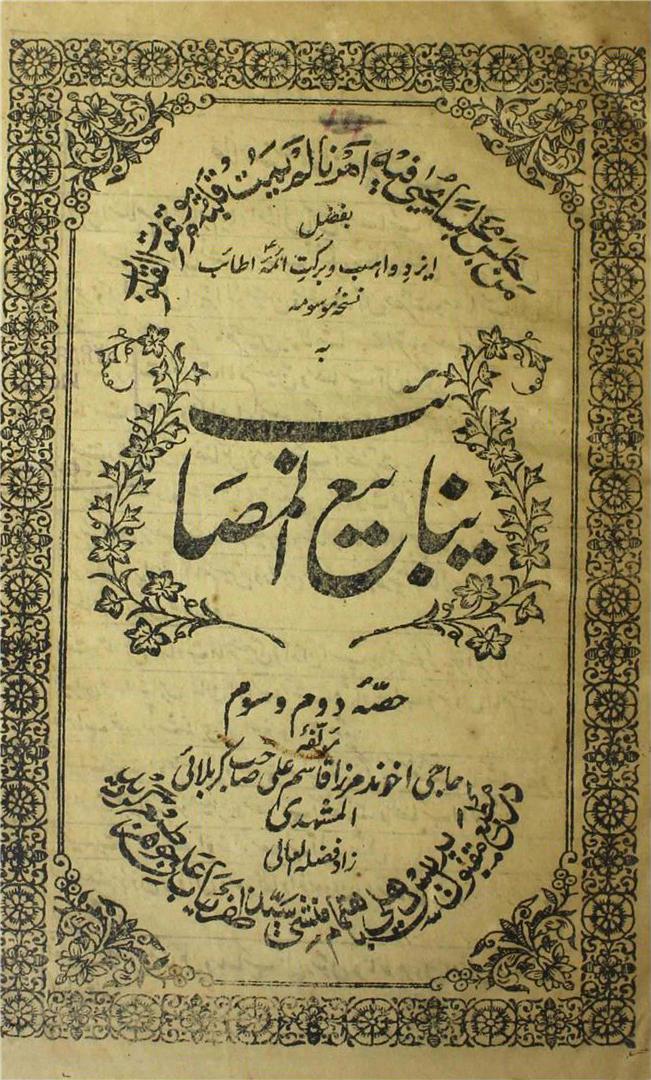 من جلس مجلسا یحیی فیه امرنا لم یمت قلبه یوم تموت القلوب
بفضلِ
ایزدِ واہب و برکتِ ائمۂ اطائب
نسخۂ موسومہ
بہ
ینابیع المصائب
حصۂ دوم و سوم
مؤلفۂ
حاجی اخوند مرزا قاسم علی صاحب کربلائی
المشہدی
زاد فضلہ العالی
در مطبع مقبول پریس دہلی باہتمام منشی سید